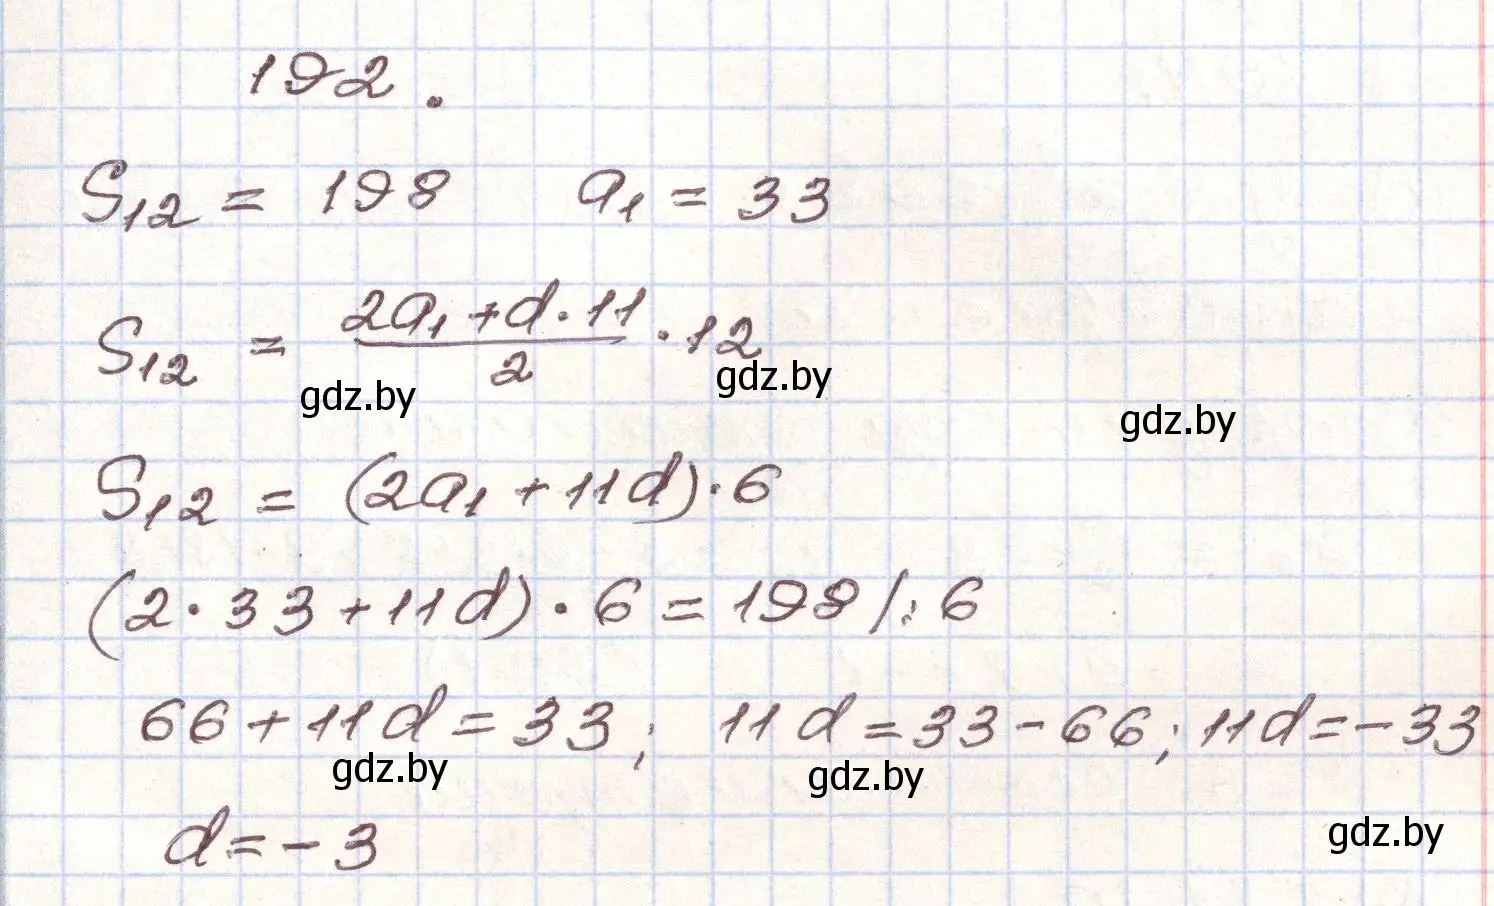 192.
S₁₂ = 198   a₁ = 33
S₁₂ = (2a₁ + d · 11)/2 · 12
gdz.by gdz.by gdz.by
S₁₂ = (2a₁ + 11d) · 6
(2 · 33 + 11d) · 6 = 198 /: 6
66 + 11d = 33; 11d = 33 - 66; 11d = -33
gdz.by gdz.by
d = -3
gdz.by